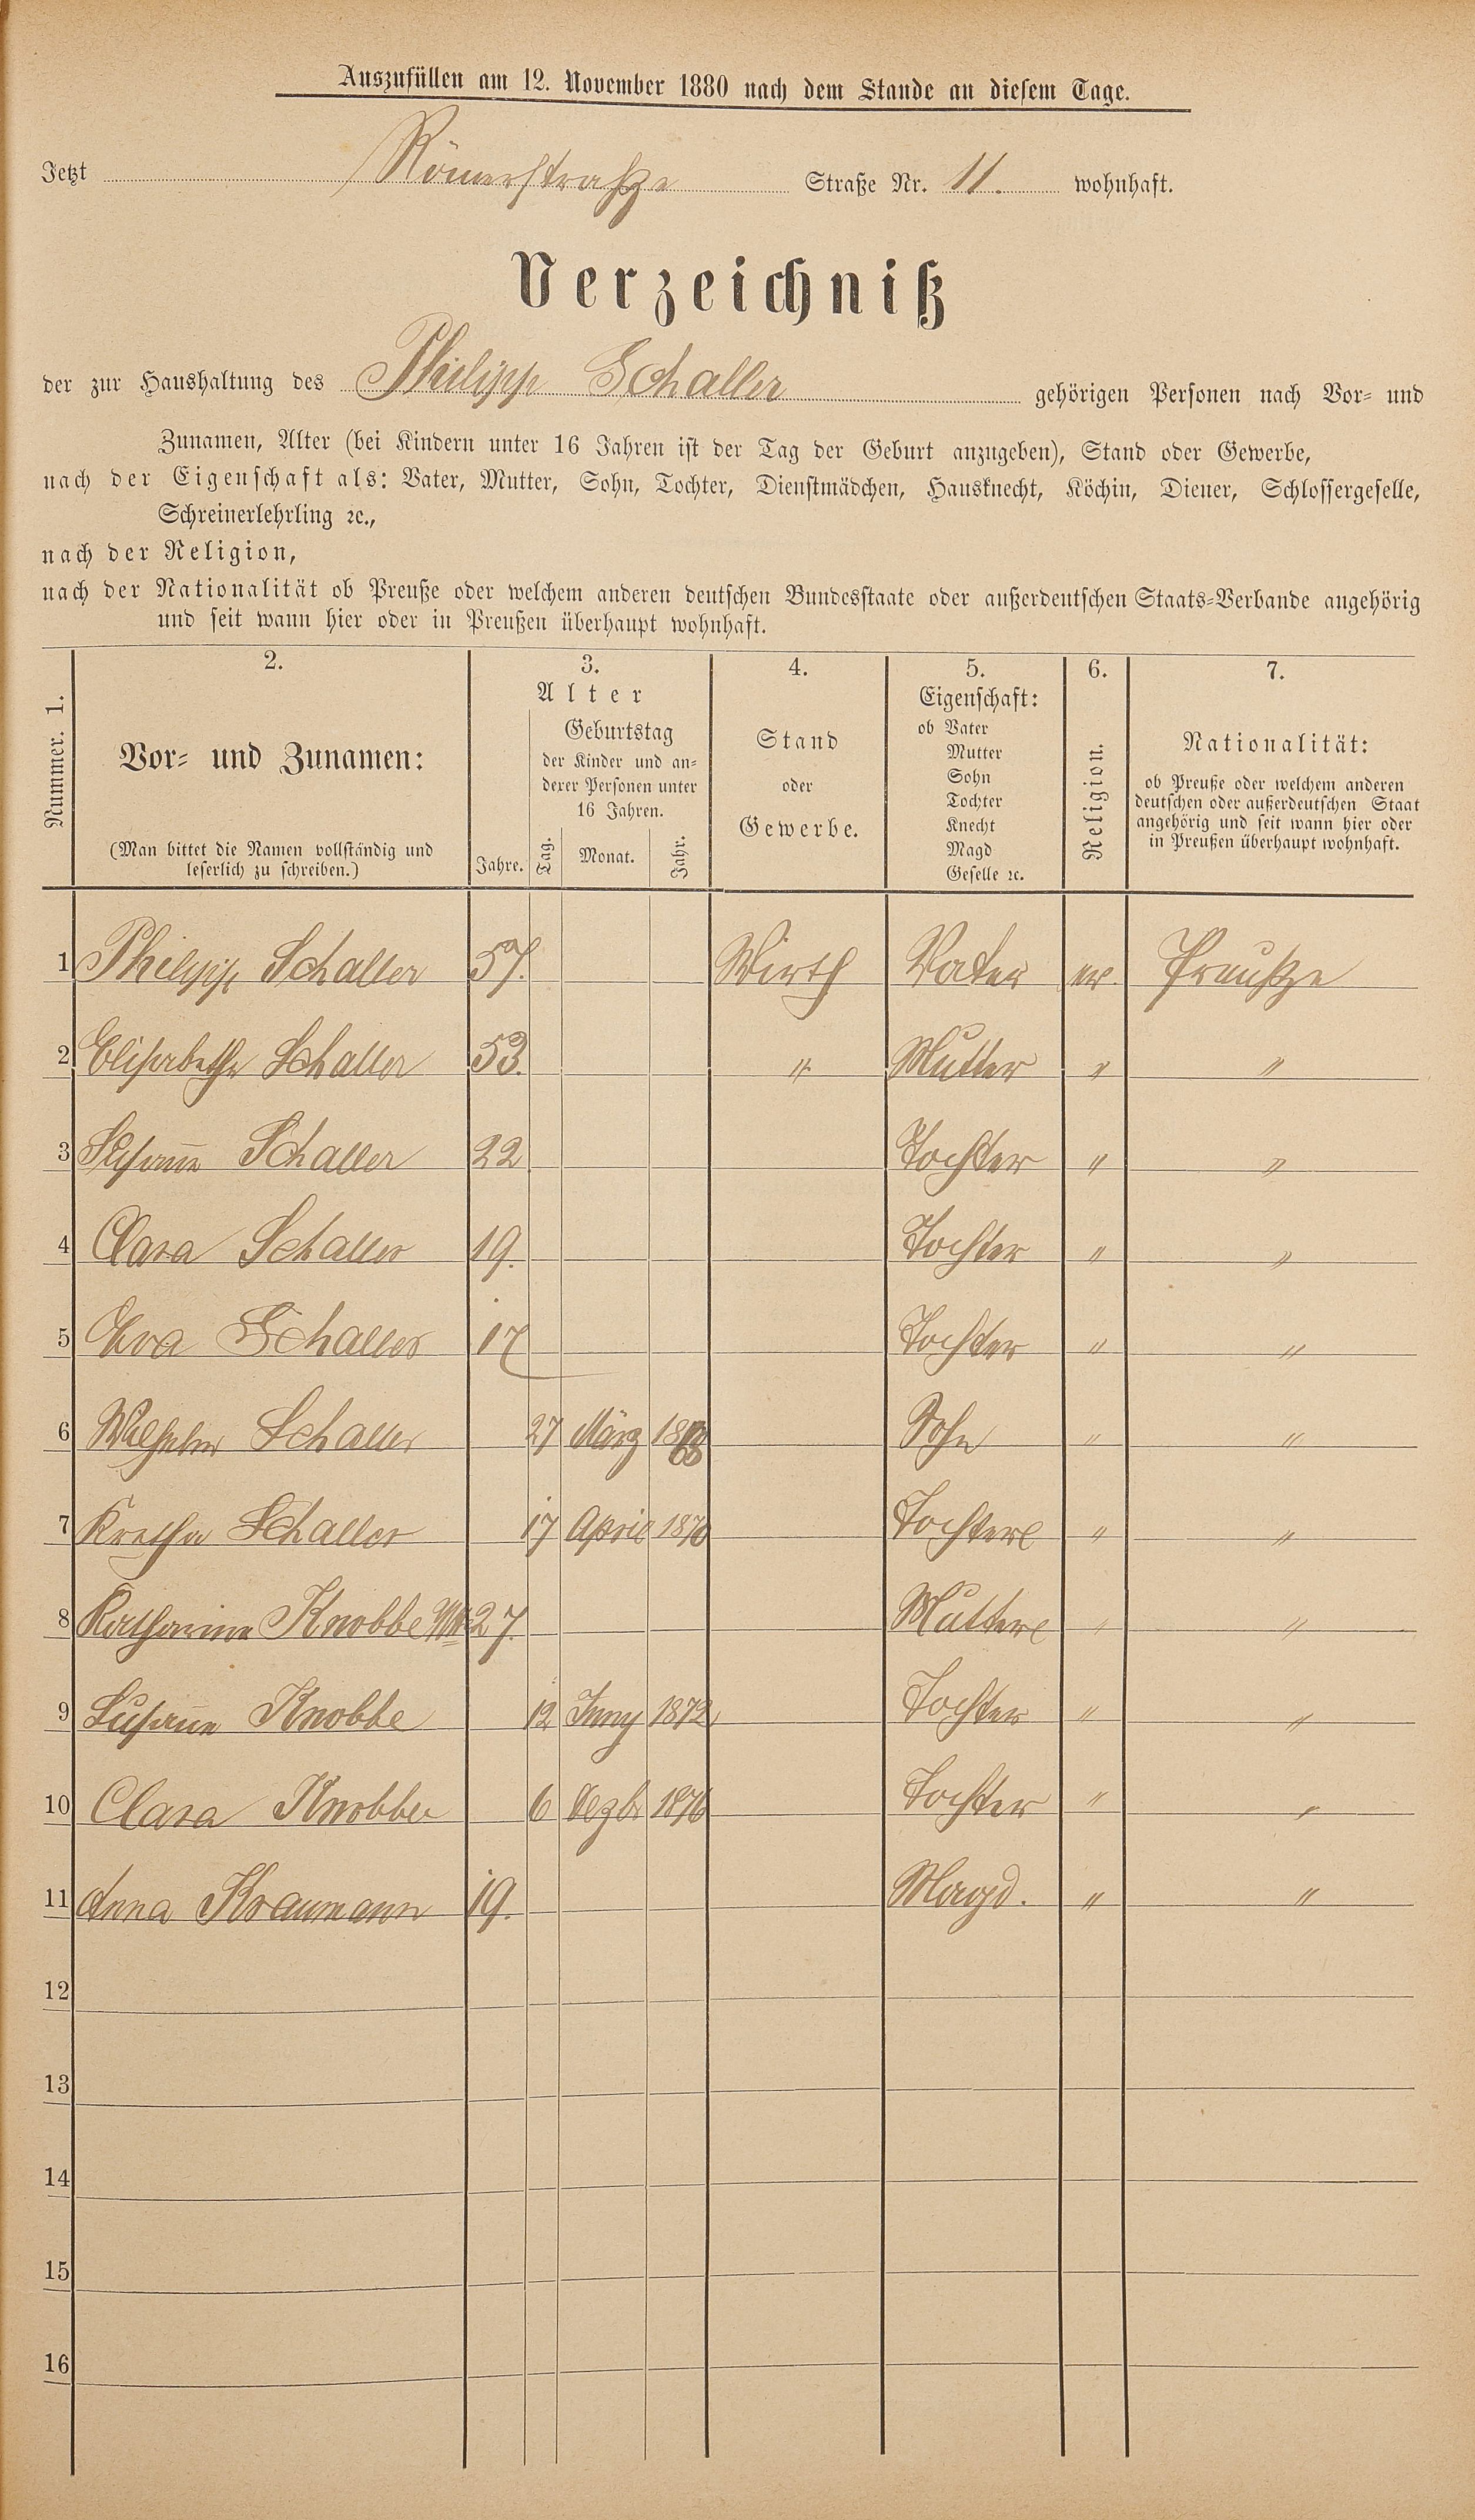 Auszufüllen am 12. November 1880 nach dem Stande an diesem Tage.
Jetzt Römerstraße Straße Nr. 11. wohnhaft.
Verzeichniß
der zur Haushaltung des Philipp Schaller gehörigen Personen nach Vor- und
Zunamen, Alter (bei Kindern unter 16 Jahren ist der Tag der Geburt anzugeben), Stand oder Gewerbe,
nach der Eigenschaft als: Vater, Mutter, Sohn, Tochter, Dienstmädchen, Hausknecht, Köchin, Diener, Schlossergeselle,
Schreinerlehrling ꝛc.,
nach der Religion,
nach der Nationalität ob Preuße oder welchem anderen deutschen Bundesstaate oder außerdeutschen Staats-Verbande angehörig
und seit wann hier oder in Preußen überhaupt wohnhaft.
Nummer. 1.
2.
Vor- und Zunamen:
(Man bittet die Namen vollständig und
leserlich zu schreiben.)
3.
Alter
Jahre.
Geburtstag
der Kinder und an-
derer Personen unter
16 Jahren.
Tag. Monat. Jahr.
4.
Stand
oder
Gewerbe.
5.
Eigenschaft:
ob Vater
Mutter
Sohn
Tochter
Knecht
Magd
Geselle ꝛc.
6.
Religion.
7.
Nationalität:
ob Preuße oder welchem anderen
deutschen oder außerdeutschen Staat
angehörig und seit wann hier oder
in Preußen überhaupt wohnhaft.
1 Philipp Schaller 57. Wirth Vater Preuße
2 Elisabetha Schaller 53. " Mutter " "
3 Susanna Schaller 22 Tochter " "
4 Clara Schaller 19. Tochter " "
5 Eva Schaller 17 Tochter " "
6 Wilhelm Schaller 27 März 1868 Sohn " "
7 Schaller 17 April 1870 Tochter " "
8 Katharina Knobbe 27. Mutter " "
9 Susanna Knobbe 12 Juny 1872 Tochter " "
10 Clara Knobbe 6 Dezbr 1876 Tochter " "
11 Anna Kraumann 19. Magd. " "
12
13
14
15
16